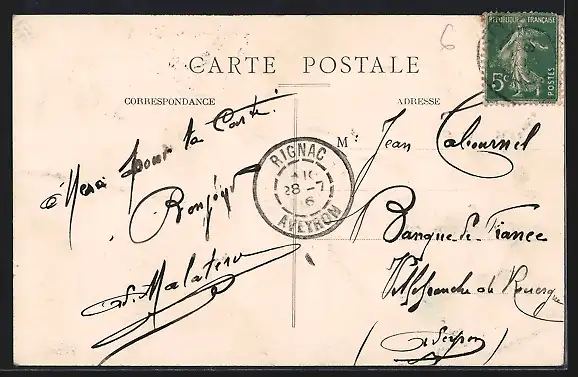 6
REPUBLIQUE FRANÇAISE
5c POSTES
CARTE POSTALE
CORRESPONDANCE
ADRESSE
Merci pour ta Carte
Bonjour
Malaterre
RIGNAC
28 - 7
6
AVEYRON
M Jean Cabournel
Banque de France
Villefranche de Rouergue
(Aveyron)